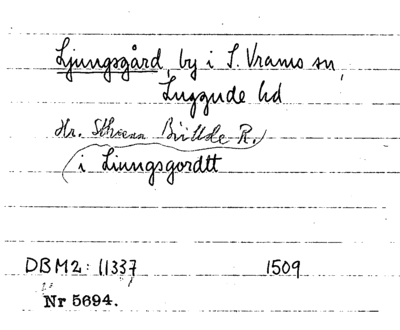 Ljungsgård, by i S. Vrams sn,
Luggude hd
Hr. Sthenn Billde R.
(i Liungsgordtt
DBM2: 11337 1509
Nr 5694.